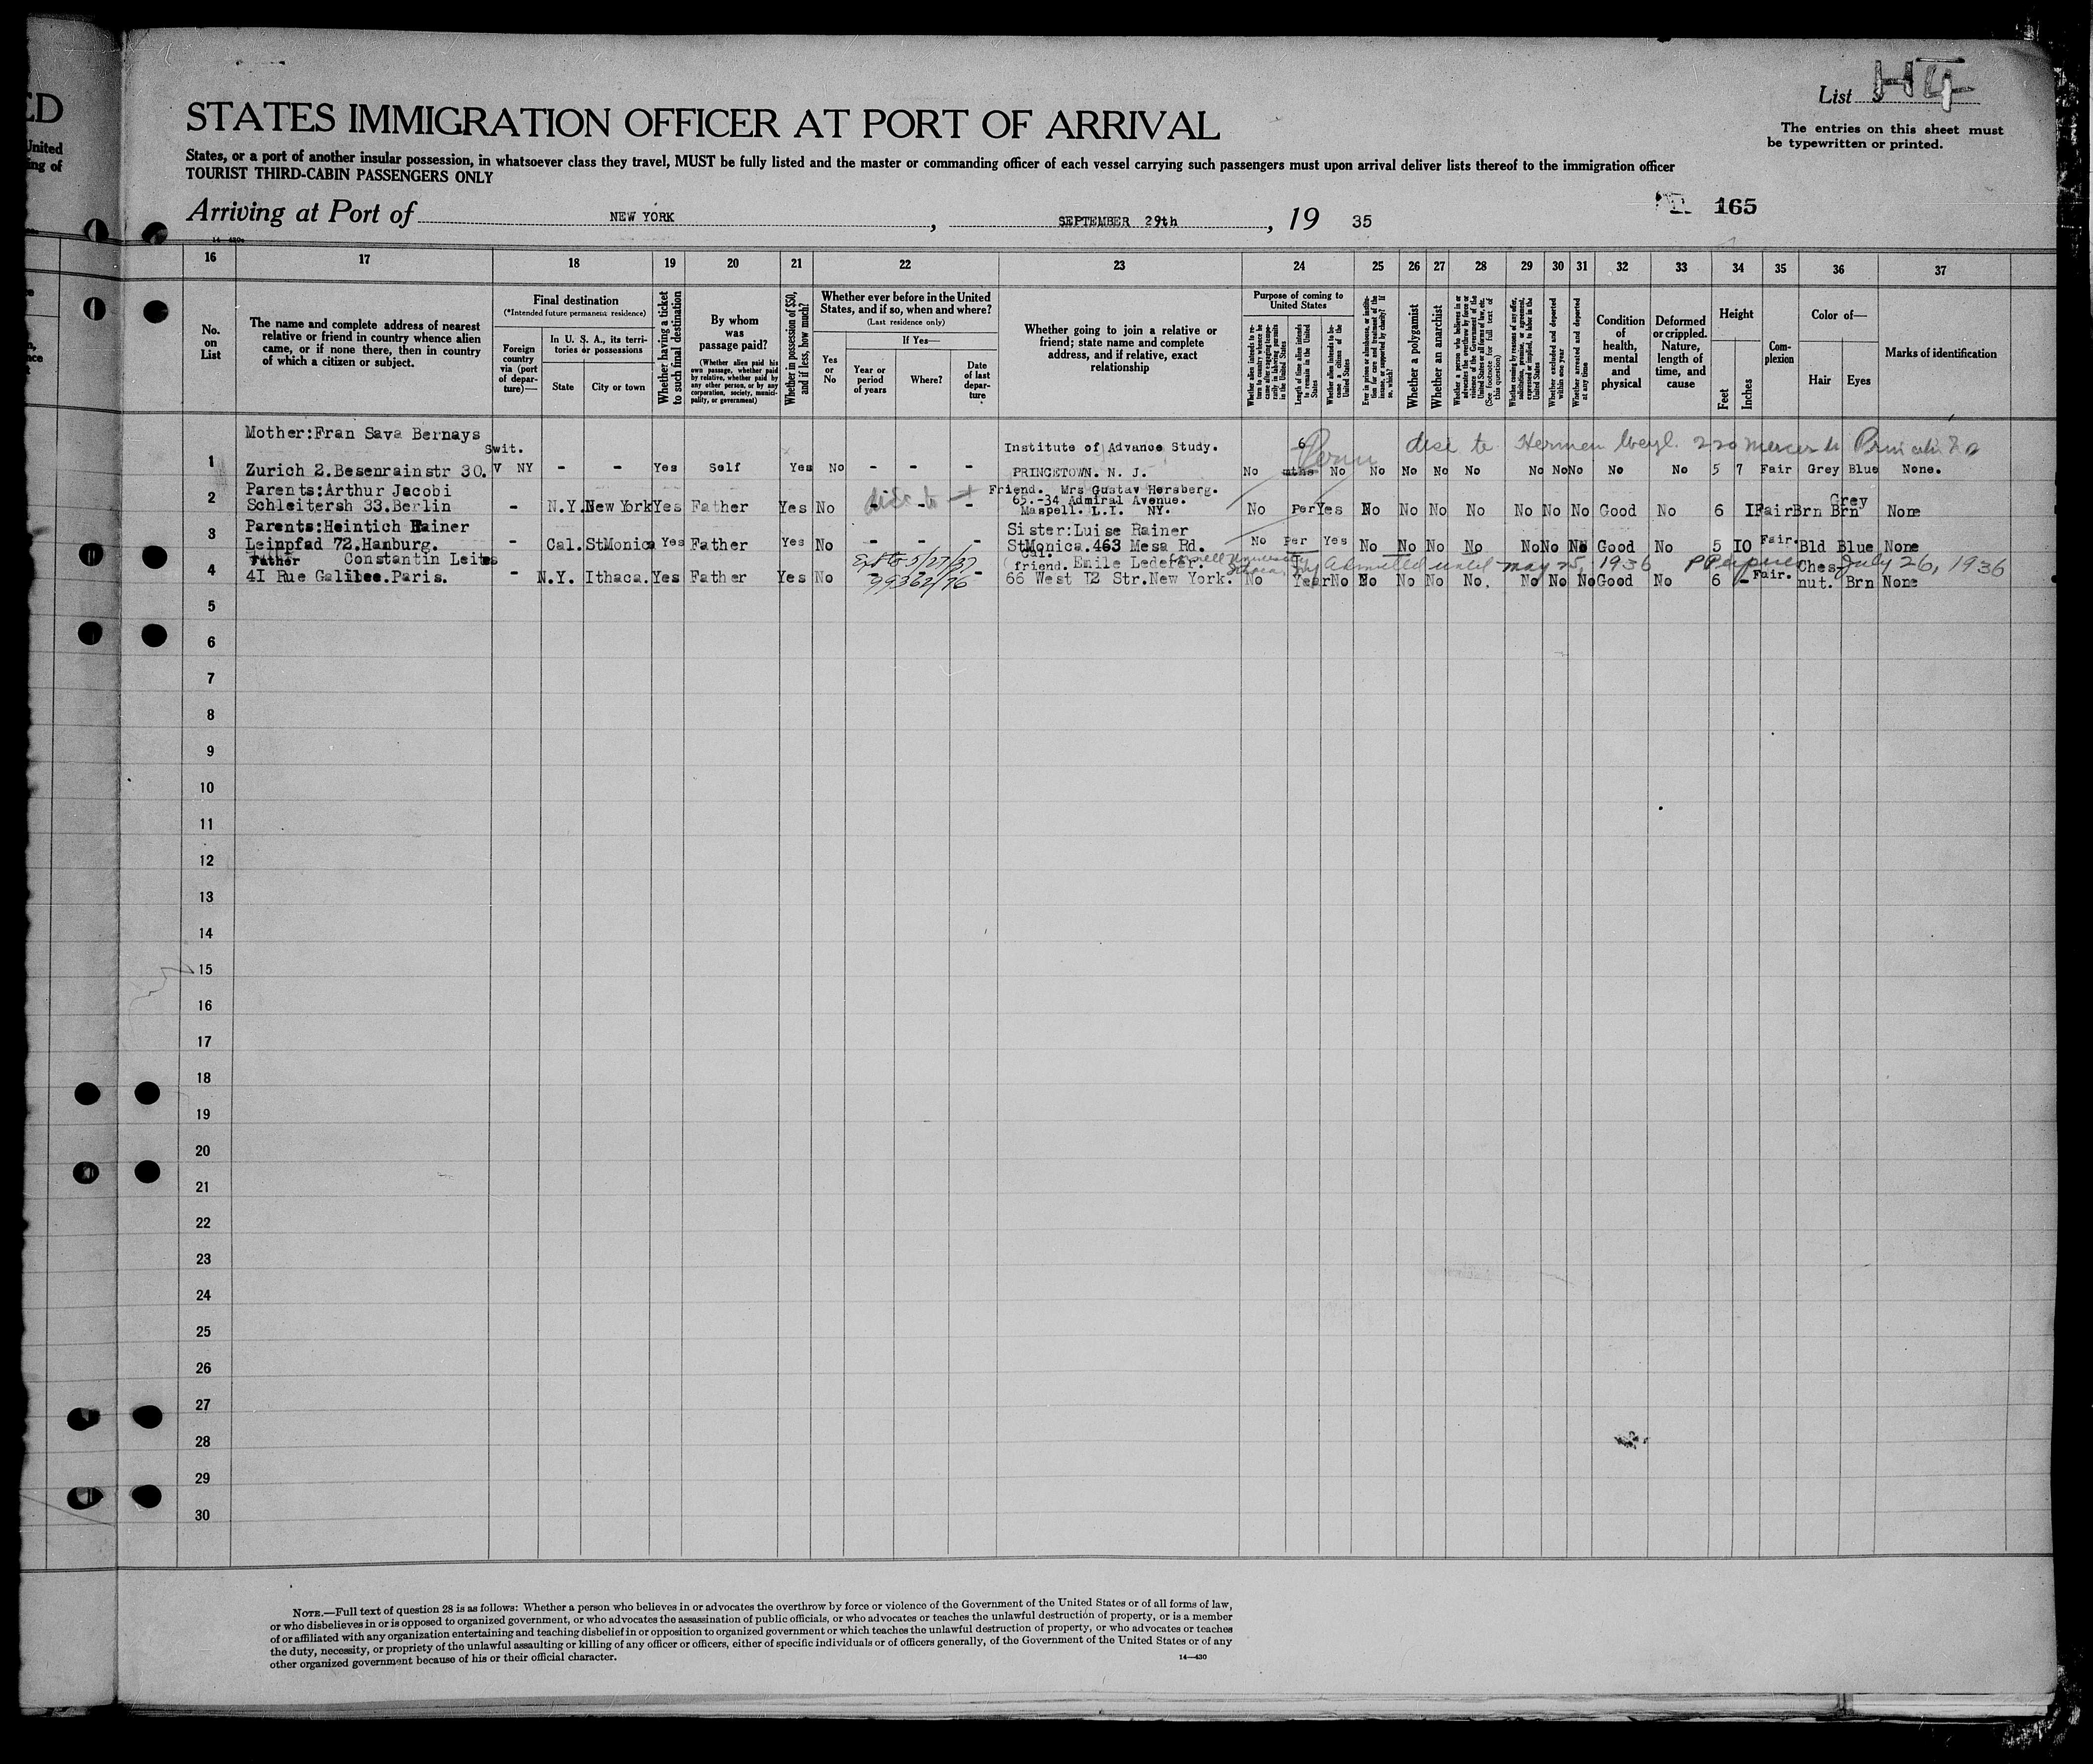 ED
United
ing of
List H4
The entries on this sheet must
be typewritten or printed.
STATES IMMIGRATION OFFICER AT PORT OF ARRIVAL
States, or a port of another insular possession, in whatsoever class they travel, MUST be fully listed and the master or commanding officer of each vessel carrying such passengers must upon arrival deliver lists thereof to the immigration officer
TOURIST THIRD-CABIN PASSENGERS ONLY
165
Arriving at Port of NEW YORK, SEPTEMBER 29th, 19 35
16 17 18 19 20 21 22 23 24 25 26 27 28 29 30 31 32 33 34 35 36 37
No. on List
The name and complete address of nearest
relative or friend in country whence alien
came, or if none there, then in country
of which a citizen or subject.
Final destination
(*Intended future permanent residence)
Foreign country via (port of departure)—
In U. S. A., its territories or possessions
State
City or town
Whether having a ticket to such final destination
By whom was passage paid?
(Whether alien paid his own passage, whether paid by relative, whether paid by any other person, or by any corporation, society, municipality, or government)
Whether in possession of $50, and if less, how much?
Whether ever before in the United States, and if so, when and where?
(Last residence only)
Yes or No
If Yes—
Year or period of years
Where?
Date of last departure
Whether going to join a relative or
friend; state name and complete
address, and if relative, exact
relationship
Purpose of coming to United States
Length of time alien intends to remain in the United States
Whether alien intends to become a citizen of the United States
Whether a polygamist
Whether an anarchist
Whether excluded and deported within one year
Whether arrested and deported at any time
Condition of health, mental and physical
Deformed or crippled. Nature, length of time, and cause
Height
Feet
Inches
Complexion
Color of—
Hair
Eyes
Marks of identification
Mother:Fran Sava Bernays
Swit.
Institute of Advance Study.
6
Perm
disc to Hermen Weyl. 220 Mercer
1 Zurich 2.Besenrainstr 30. V NY - - Yes Self Yes No - - - PRINCETOWN. N. J. No mths No No No No No No No No No No 5 7 Fair Grey Blue None.
Parents:Arthur Jacobi
disc to
Friend. Mrs Gustav Hersberg.
65.-34 Admiral Avenue.
Grey
2 Schleitersh 33.Berlin - N.Y. New York Yes Father Yes No - - - Maspell. L.I. NY. No Per Yes No No No No No No No Good No 6 I Fair Brn Brn None
Parents:Heintich Rainer
Sister:Luise Rainer
3 Leinpfad 72.Hamburg. - Cal. StMonica Yes Father Yes No - - - StMonica.463 Mesa Rd. No Per Yes No No No No No No No Good No 5 IO Fair. Bld Blue None
Cal.
Father Constantin Leites
Ext to 5/27/37
friend. Emile Lederer.
Admitted until May 25, 1936
July 26, 1936
Ches-
4 4I Rue Galilee.Paris. - N.Y. Ithaca. Yes Father Yes No - 99362/76 - 66 West I2 Str.New York. No I Year No No No No No. No No No Good No 6 - Fair. nut. Brn None
5
6
7
8
9
10
11
12
13
14
15
16
17
18
19
20
21
22
23
24
25
26
27
28
29
30
NOTE.—Full text of question 28 is as follows: Whether a person who believes in or advocates the overthrow by force or violence of the Government of the United States or of all forms of law,
or who disbelieves in or is opposed to organized government, or who advocates the assassination of public officials, or who advocates or teaches the unlawful destruction of property, or is a member
of or affiliated with any organization entertaining and teaching disbelief in or opposition to organized government or which teaches the unlawful destruction of property, or who advocates or teaches
the duty, necessity, or propriety of the unlawful assaulting or killing of any officer or officers, either of specific individuals or of officers generally, of the Government of the United States or of any
other organized government because of his or their official character.
14—430